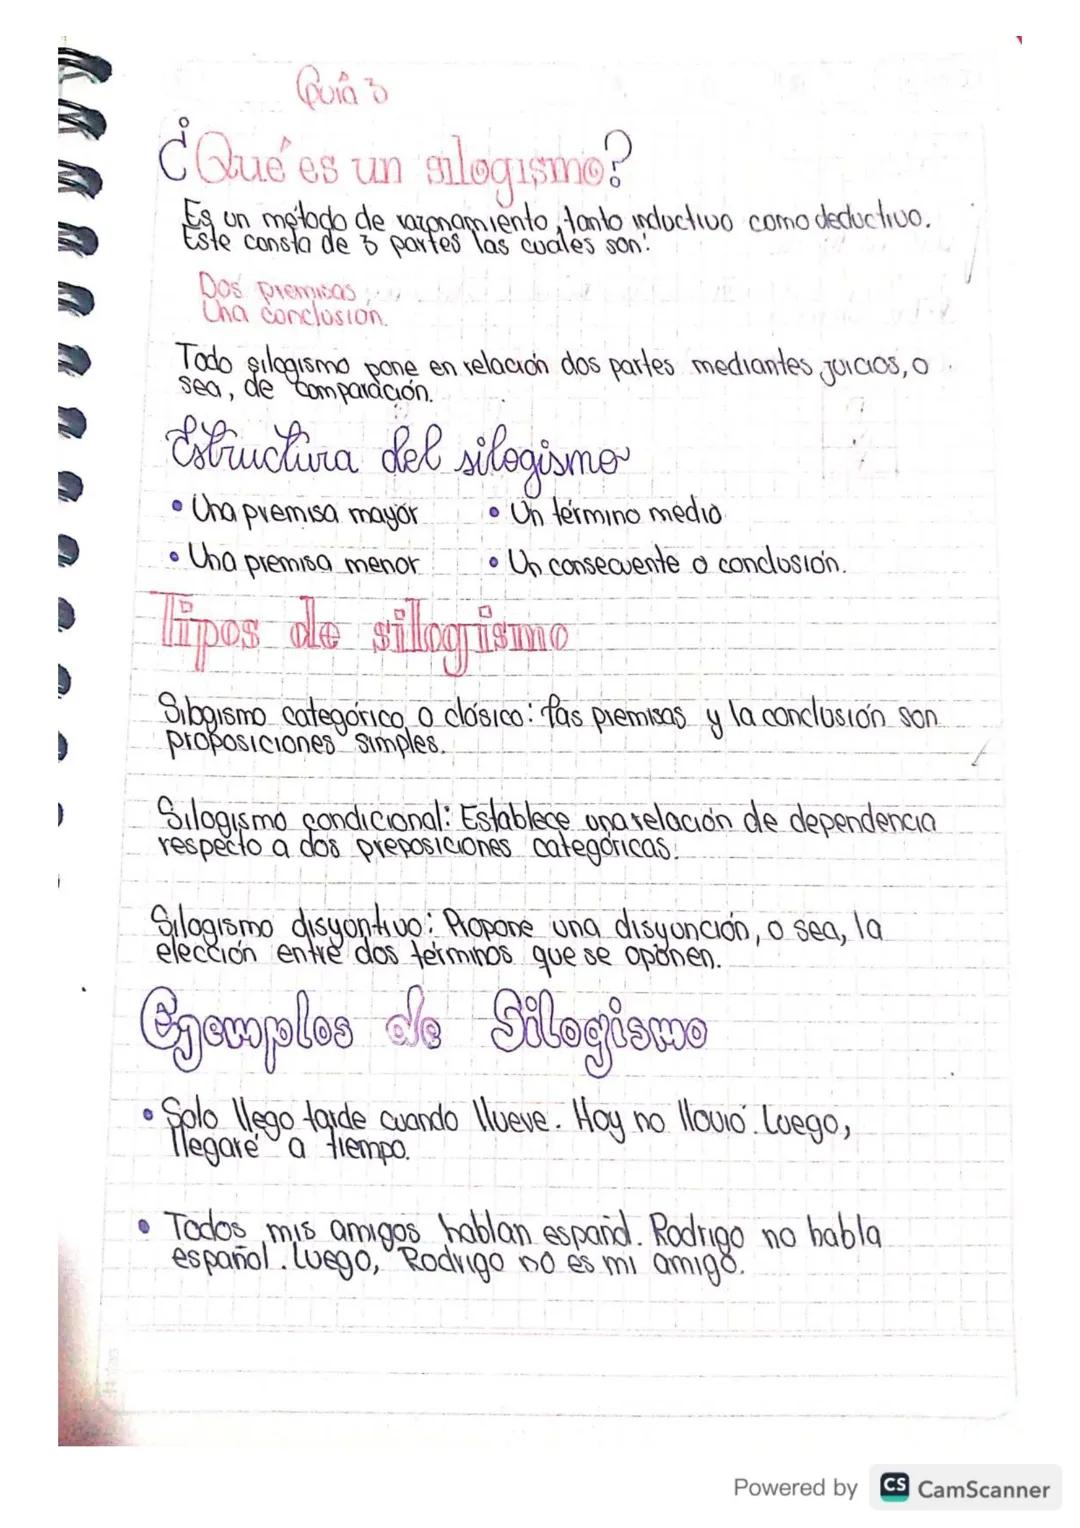 Guía 3
¿Qué es un silogismo?
Es un método de razonamiento, tanto inductivo como deductivo.
Este consta de 3 partes las cuales son:
Dos premisas
Una conclusion.
Todo silogismo pone en relación dos partes mediantes juicios, o
sea, de comparación.
Estructura del silogismo
• Una premisa mayor
• Un término medio
• Una premisa menor
• Un consecuente o conclusión.
Tipos de silogismo
Silogismo categórico o clásico: las premisas y la conclusión son
proposiciones simples.
Silogismo condicional: Establece una relación de dependencia
respecto a dos preposiciones categóricas.
Silogismo disyuntivo: Propone una disyunción, o sea, la
elección entre dos términos que se oponen.
Ejemplos de Silogismo
• Solo llego tarde cuando llueve. Hoy no llovió. Luego,
llegaré a tiempo.
• Todos mis amigos hablan español. Rodrigo no habla
español. Luego, Rodrigo no es mi amigo.
Powered by CS CamScanner